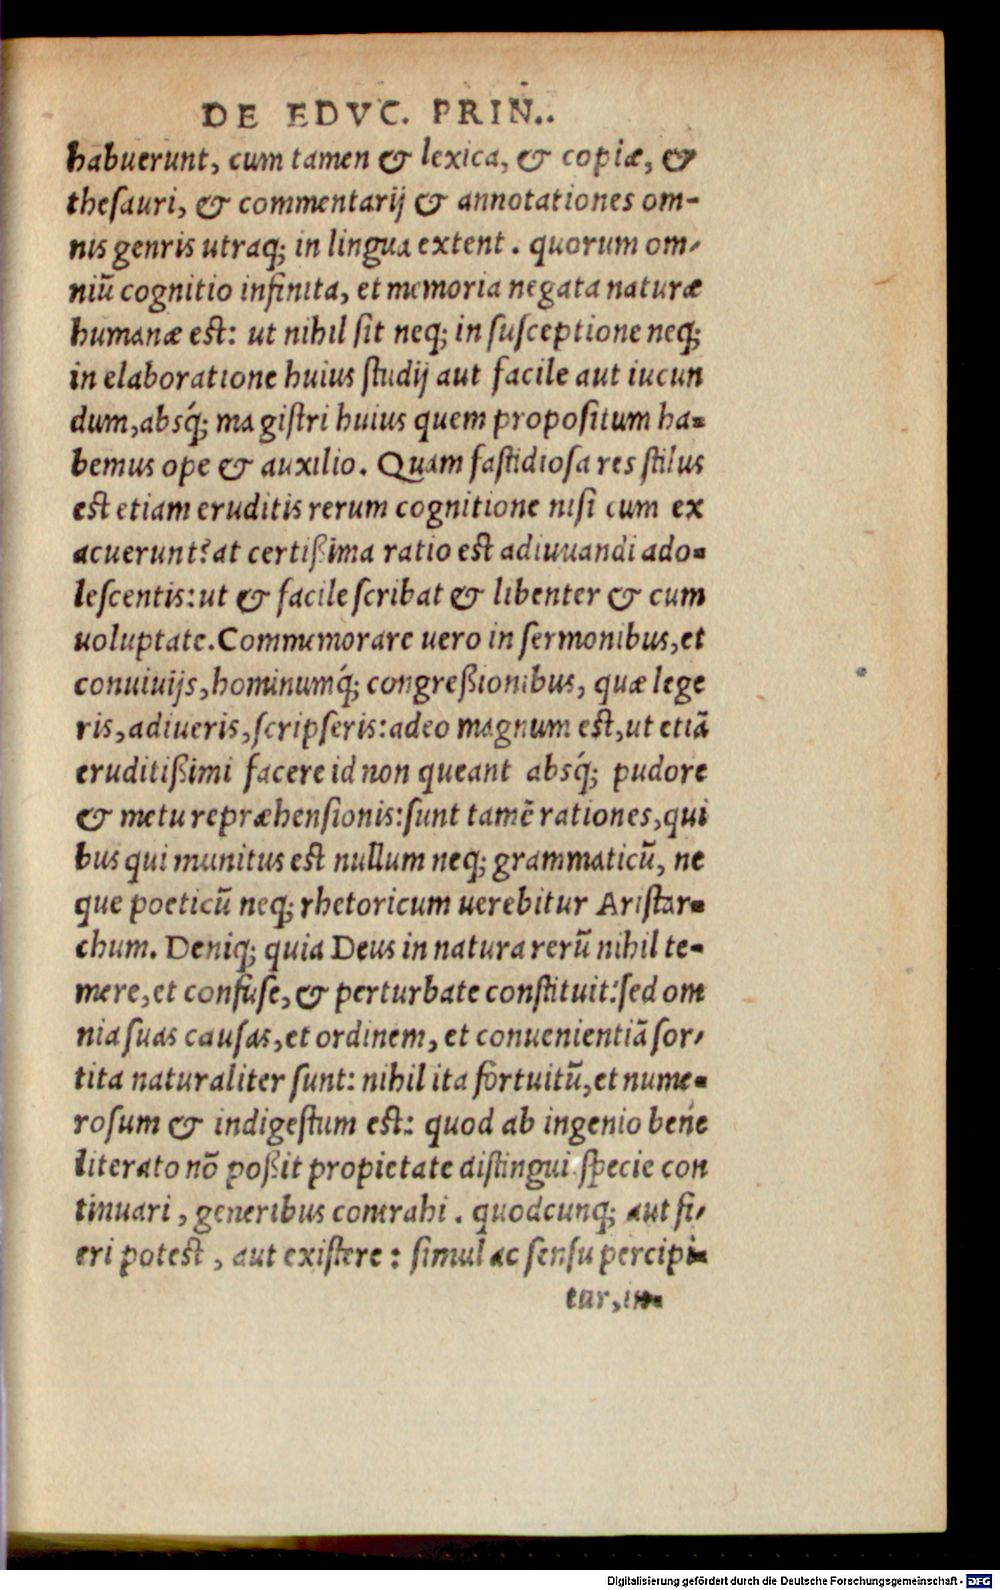 DE EDVC. PRIN..
habuerunt, cum tamen & lexica, & copiæ, &
thesauri, & commentarij & annotationes om-
nis genris utraq; in lingua extent. quorum om-
niū cognitio infinita, et memoria negata naturæ
humanæ est: ut nihil sit neq; in susceptione neq;
in elaboratione huius studij aut facile aut iucun
dum, absq́; magistri huius quem propositum ha-
bemus ope & auxilio. Quam fastidiosa res stilus
est etiam eruditis rerum cognitione nisi cum ex
acuerunt? at certißima ratio est adiuuandi ado-
lescentis: ut & facile scribat & libenter & cum
uoluptate. Commemorare uero in sermonibus, et
conuiuijs, hominumq́; congreßionibus, quæ lege
ris, adiueris, scripseris: adeo magnum est, ut etiā
eruditißimi facere id non queant absq́; pudore
& metu repræhensionis: sunt tamē rationes, qui
bus qui munitus est nullum neq; grammaticū, ne
que poeticū neq; rhetoricum uerebitur Aristar-
chum. Deniq; quia Deus in natura rerū nihil te-
mere, et confuse, & perturbate constituit: sed om
nia suas causas, et ordinem, et conuenientiā sor-
tita naturaliter sunt: nihil ita fortuitū, et nume-
rosum & indigestum est: quod ab ingenio bene
literato nō poßit propietate distingui specie con
tinuari, generibus contrahi. quodcunq; aut fi-
eri potest, aut existere: simul ac sensu percipi-
tur, in-
Digitalisierung gefördert durch die Deutsche Forschungsgemeinschaft - DFG